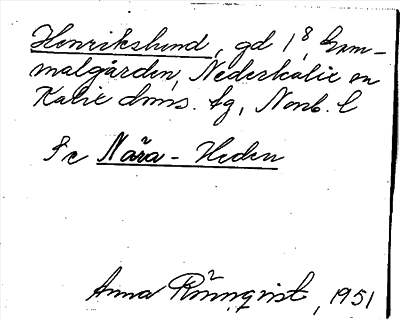 Henrikslund, gd 1⁸, Gam-
malgården, Nederkalix sn
Kalix doms. tg, Norrb. l
Se Näsa - Heden
Anna Rönnqvist, 1951